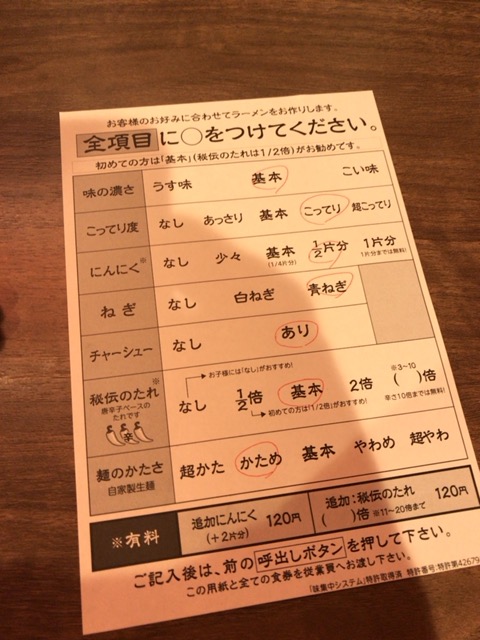 お客様のお好みに合わせてラーメンをお作りします。
全項目に○をつけてください。
初めての方は「基本」(秘伝のたれは1/2倍)がお勧めです。
味の濃さ うす味 基本 こい味
こってり度 なし あっさり 基本 こってり 超こってり
にんにく※ なし 少々 基本 1/2片分 1片分
(1/4片分) 1片分までは無料!
ねぎ なし 白ねぎ 青ねぎ
チャーシュー なし あり
お子様には「なし」がおすすめ!
秘伝のたれ※ なし 1/2倍 基本 2倍 ※3~10 ( )倍
唐辛子ベースの
たれです
初めての方は「1/2倍」がおすすめ!
辛さ10倍までは無料!
辛
麺のかたさ 超かた かため 基本 やわめ 超やわ
自家製生麺
※有料
追加にんにく 120円
(+2片分)
追加:秘伝のたれ 120円
( )倍 ※11~20倍まで
ご記入後は、前の呼出しボタンを押して下さい。
この用紙と全ての食券を従業員へお渡し下さい。
「味集中システム」特許取得済 特許番号:特許第42679